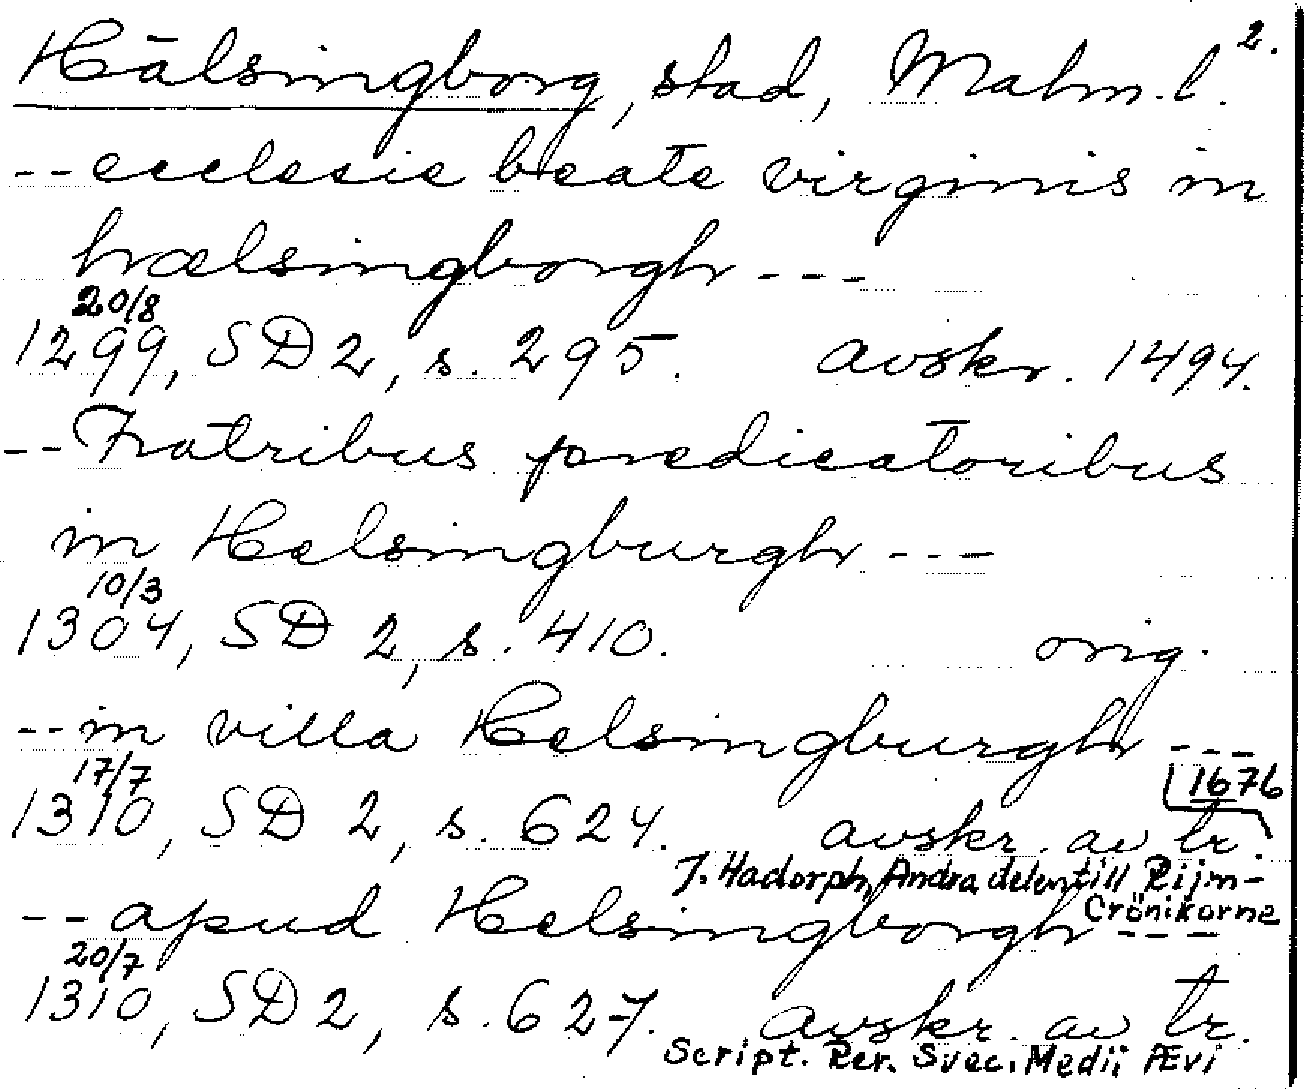 Hälsingborg, stad, Malm. l. 2.
-- ecclesie beate virginis in
hælsingborgh ---
20/8
1299, SD 2, s. 295. avskr. 1494.
-- Fratribus predicatoribus
in Helsingburgh ---
10/3
1304, SD 2, s. 410. orig.
-- in villa Helsingburgh ---
17/7 1676
1310, SD 2, s. 624. avskr. av tr.
J. Hadorph, Andra delen till Rijm-
Crönikorne
-- apud Helsingborgh ---
20/7
1310, SD 2, s. 627. avskr. av tr.
Script. Rer. Svec. Medii Ævi